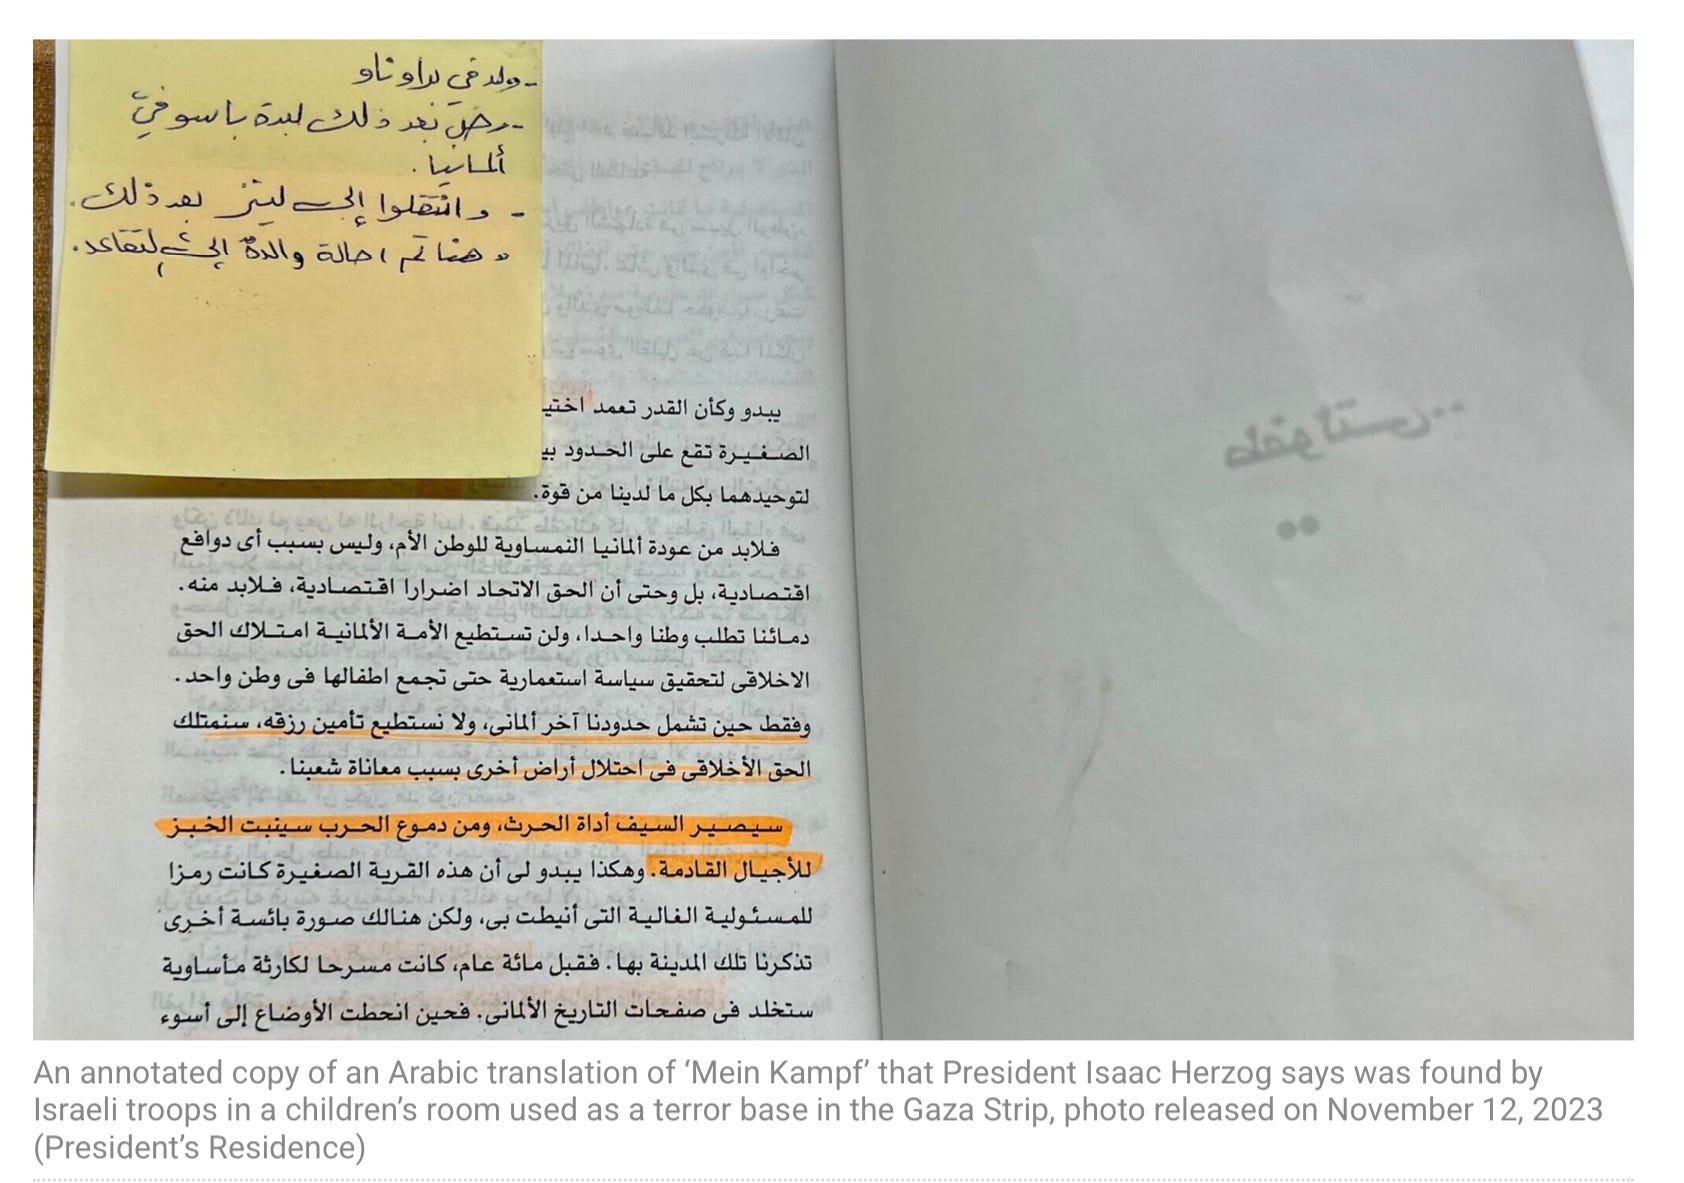 -ولد في براوناو
-رحل بعد ذلك لبدة باسو في
ألمانيا.
- وانتقلوا إلى لينز بعد ذلك.
وهنا تم احالة والده إلى التقاعد.
يبدو وكأن القدر تعمد اختي
الصغيرة تقع على الحدود بي
لتوحيدهما بكل ما لدينا من قوة.
فلابد من عودة ألمانيا النمساوية للوطن الأم، وليس بسبب أى دوافع
اقتصادية، بل وحتى أن الحق الاتحاد اضرارا اقتصادية، فلابد منه.
دمائنا تطلب وطنا واحدا، ولن تستطيع الأمة الألمانية امتلاك الحق
الاخلاقى لتحقيق سياسة استعمارية حتى تجمع اطفالها فى وطن واحد.
وفقط حين تشمل حدودنا آخر ألمانى، ولا نستطيع تأمين رزقه، سنمتلك
الحق الأخلاقى فى احتلال أراض أخرى بسبب معاناة شعبنا.
سيصير السيف أداة الحرث، ومن دموع الحرب سينبت الخبز
للأجيال القادمة. وهكذا يبدو لى أن هذه القرية الصغيرة كانت رمزا
للمسئولية الغالية التى أنيطت بى، ولكن هنالك صورة بائسة أخرى
تذكرنا تلك المدينة بها. فقبل مائة عام، كانت مسرحا لكارثة مأساوية
ستخلد فى صفحات التاريخ الألمانى. فحين انحطت الأوضاع إلى أسوء
طفولتى
An annotated copy of an Arabic translation of ‘Mein Kampf’ that President Isaac Herzog says was found by
Israeli troops in a children’s room used as a terror base in the Gaza Strip, photo released on November 12, 2023
(President’s Residence)